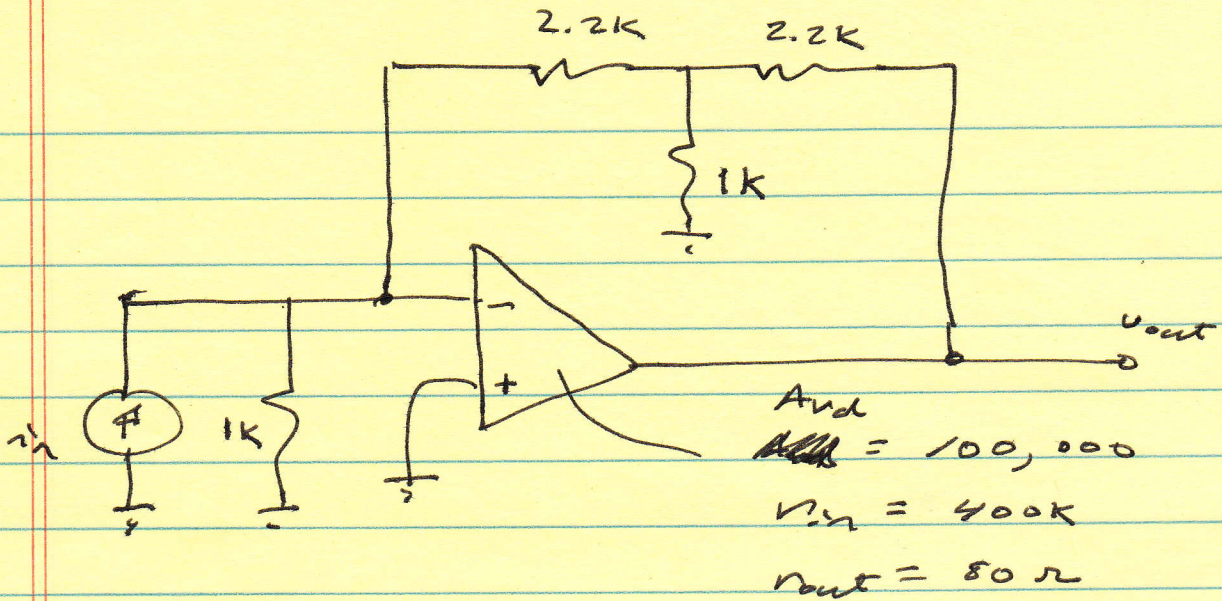 2.2K 2.2K
1K
- vout
+
in 1K
Avd
= 100,000
rin = 400K
rout = 80 Ω